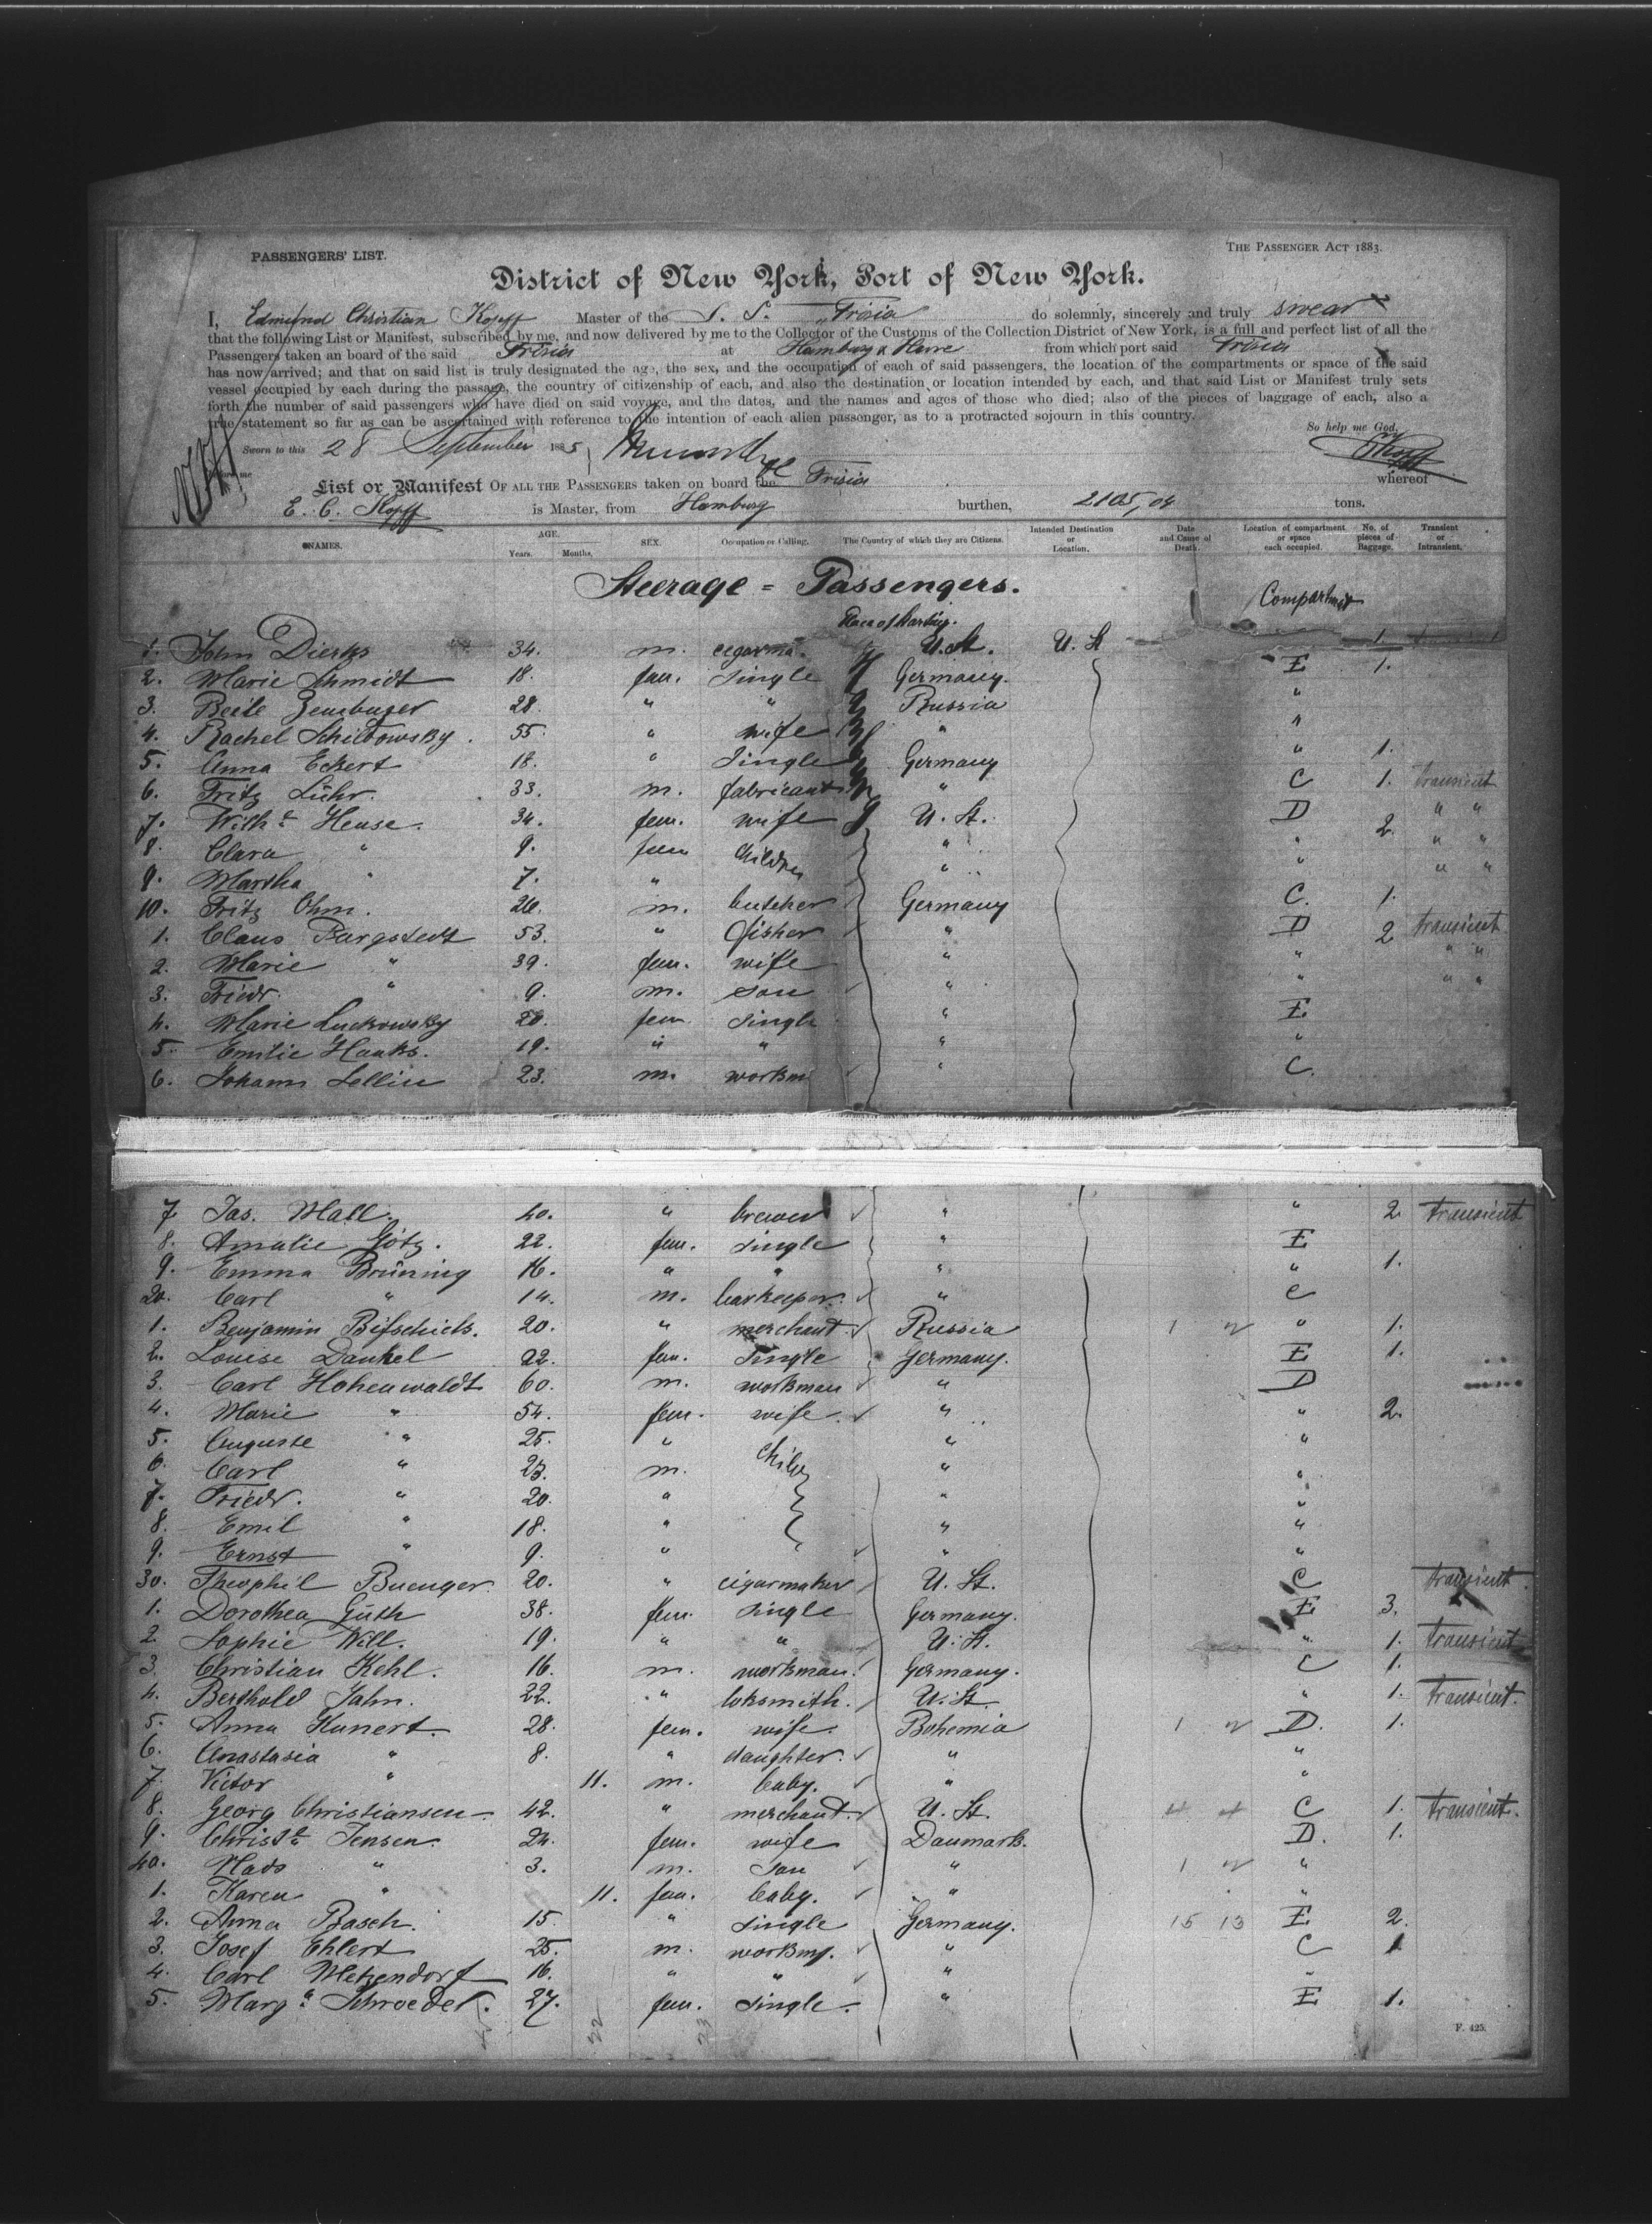 PASSENGERS' LIST.
THE PASSENGER ACT 1883.
District of New York, Port of New York.
I, Edmund Christian Kopff Master of the S. S. "Frisia do solemnly, sincerely and truly swear
that the following List or Manifest, subscribed by me, and now delivered by me to the Collector of the Customs of the Collection District of New York, is a full and perfect list of all the
Passengers taken an board of the said Frisia at Hamburg & Havre from which port said Frisia
has now arrived; and that on said list is truly designated the age, the sex, and the occupation of each of said passengers, the location of the compartments or space of the said
vessel occupied by each during the passage, the country of citizenship of each, and also the destination or location intended by each, and that said List or Manifest truly sets
forth the number of said passengers who have died on said voyage, and the dates, and the names and ages of those who died; also of the pieces of baggage of each, also a
true statement so far as can be ascertained with reference to the intention of each alien passenger, as to a protracted sojourn in this country.
So help me God,
Sworn to this 28 September 1885
before me
List or Manifest OF ALL THE PASSENGERS taken on board the Frisia whereof
E. C. Kopff is Master, from Hamburg burthen, 2105,04 tons.
NAMES. AGE. Years. Months. SEX. Occupation or Calling. The Country of which they are Citizens. Intended Destination or Location. Date and Cause of Death. Location of compartment or space each occupied. No. of pieces of Baggage. Transient or Intransient.
Steerage = Passengers.
Compartment
1. John Dierks 34. m. cigarma. U. St. U. St 1.
2. Marie Schmidt 18. fem. single Germany. E 1.
3. Beile 28. " " Russia "
4. Rachel Schilbowsky. 55. " wife " "
5. Anna Eckert 18. " Single Germany " 1.
6. Fritz Lühr. 33. m. fabricant " C 1. transient
7. Wilh.e Hense. 34. fem. wife U. St. D 2. " "
8. Clara " 9. fem children " " " "
9. Martha " 7. " " " " "
10. Fritz Ohm. 26. m. butcher Germany C. 1.
1. Claus Burgstedt 53. " fisher " D 2 transient
2. Marie " 39. fem. wife " " " "
3. Friedr. " 9. m. son " " " "
4. Marie Luckowsky 20. fem single " E
5. Emilie Haaks. 19. " " " "
6. Johann Sellin 23. m. workm " C.
7. Jas. Mall. 40. " brewer " " 2. transient
8. Amalie Götz. 22. fem. single " E
9. Emma Brüning 16. " " " " 1.
20. Carl " 14. m. barkeeper. " C
1. Benjamin Bifschick. 20. " merchant. Russia 1 " 1.
2. Louise Dankel 22. fem. single Germany. E 1.
3. Carl Hohenwaldt 60. m. workman " D
4. Marie " 54. fem. wife. " " 2.
5. Auguste " 25. " " "
6. Carl " 23. m. " "
7. Friedr. " 20. " " "
8. Emil " 18. " " "
9. Ernst " 9. " " "
30. Theophil Buenger. 20. " cigarmaker U. St. C transient
1. Dorothea Güth 38. fem. single Germany. E 3.
2. Sophie Will. 19. " " U. St. " 1. transient
3. Christian Kehl. 16. m. workman. Germany. C 1.
4. Berthold Jahn. 22. " loksmith. U. St " 1. transient.
5. Anna Kunert. 28. fem. wife. Bohemia 1 D. 1.
6. Anastasia " 8. " daughter. " "
7. Victor " 11. m. baby. " "
8. Georg Christiansen 42. " merchant. U. St. C 1. transient.
9. Christ.e Jensen. 24. fem. wife Danmark. D. 1.
40. Mads " 3. m. son " 1 "
1. Karen " 11. fem. baby. " "
2. Anna Basch. 15. " single Germany. 15 13 E 2.
3. Josef Ehlert 25. m. workmg. " C 1
4. Carl Metzendorf 16. " " " "
5. Marg.a Schroeder. 27. fem. single. " E 1.
22 23
F. 425.